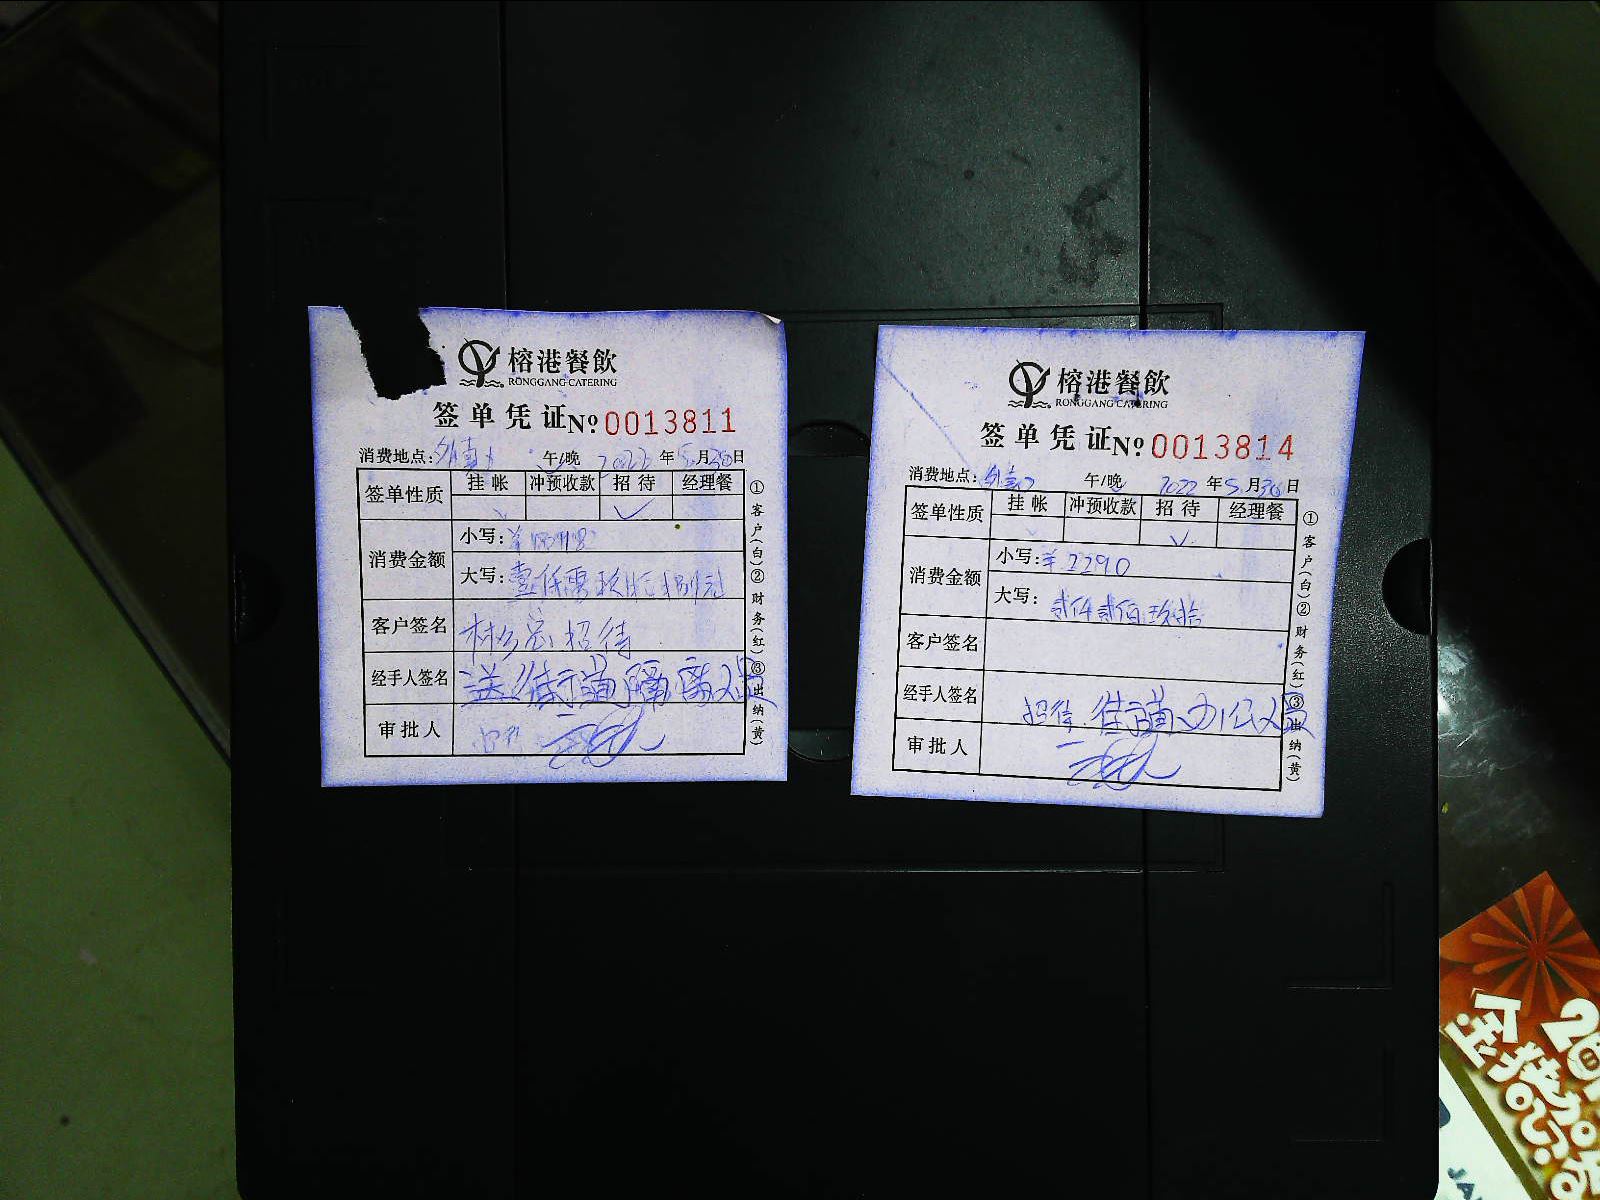 榕港餐飲
RONGGANG CATERING
签单凭证 Nº 0013811
消费地点: 外卖 午/晚 2022 年 5 月 30 日
签单性质 挂帐 冲预收款 招待 经理餐
✓
消费金额
小写: ¥
大写: 壹仟零玖拾捌元
客户签名 林 招待
经手人签名 送 隔离
审批人
①客户(白)②财务(红)③出纳(黄)
榕港餐飲
RONGGANG CATERING
签单凭证 Nº 0013814
消费地点: 外卖 午/晚 2022 年 5 月 30 日
签单性质 挂帐 冲预收款 招待 经理餐
✓
消费金额
小写: ¥ 2290
大写: 贰仟贰佰玖拾
客户签名
经手人签名 招待 办公
审批人
①客户(白)②财务(红)③出纳(黄)
金猪